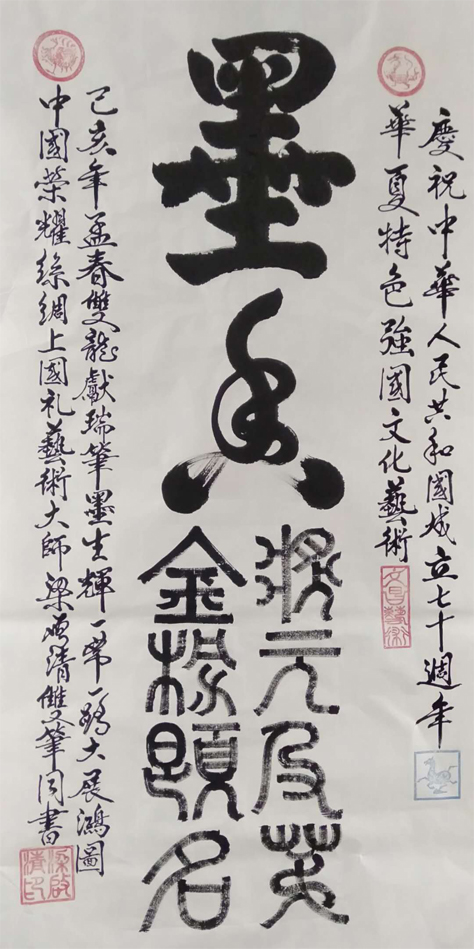 慶祝中華人民共和國成立七十週年
華夏特色強國文化藝術
墨
狀元及第
金榜題名
己亥年孟春雙龍獻瑞筆墨生輝一帶一路大展鴻圖
中國榮耀絲綢上國礼藝術大師梁啟清雙筆同書
梁啟清印